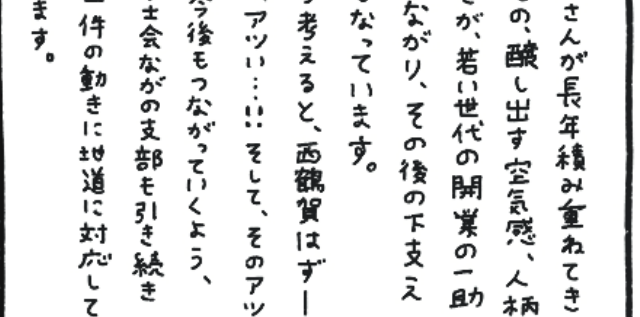 さんが長年積み重ねてき
の、醸し出す空気感、人柄
が、若い世代の開業の一助
ながり、その後の下支え
なっています。
考えると、西鶴賀はずー
アツい…!! そして、そのアツ
今後もつながっていくよう、
士会ながの支部も引き続き
件の動きに地道に対応して
ます。